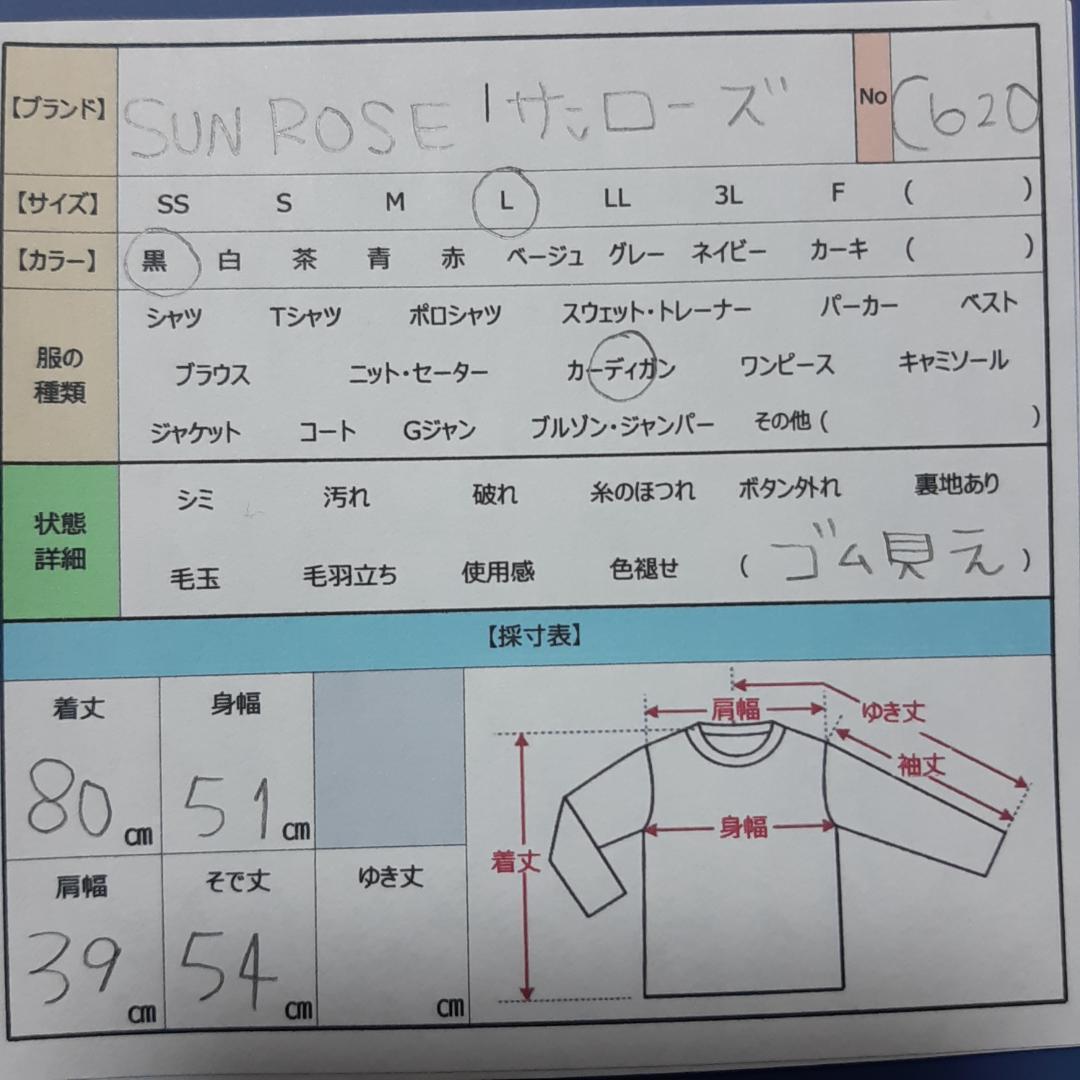 【ブランド】 SUN ROSE | サンローズ No C620
【サイズ】 SS S M L LL 3L F ( )
【カラー】 黒 白 茶 青 赤 ベージュ グレー ネイビー カーキ ( )
服の種類
シャツ Tシャツ ポロシャツ スウェット・トレーナー パーカー ベスト
ブラウス ニット・セーター カーディガン ワンピース キャミソール
ジャケット コート Gジャン ブルゾン・ジャンパー その他 ( )
状態詳細
シミ 汚れ 破れ 糸のほつれ ボタン外れ 裏地あり
毛玉 毛羽立ち 使用感 色褪せ ( ゴム見え )
【採寸表】
着丈 身幅
80 cm 51 cm
肩幅 そで丈 ゆき丈
39 cm 54 cm cm
肩幅 ゆき丈
袖丈
身幅
着丈